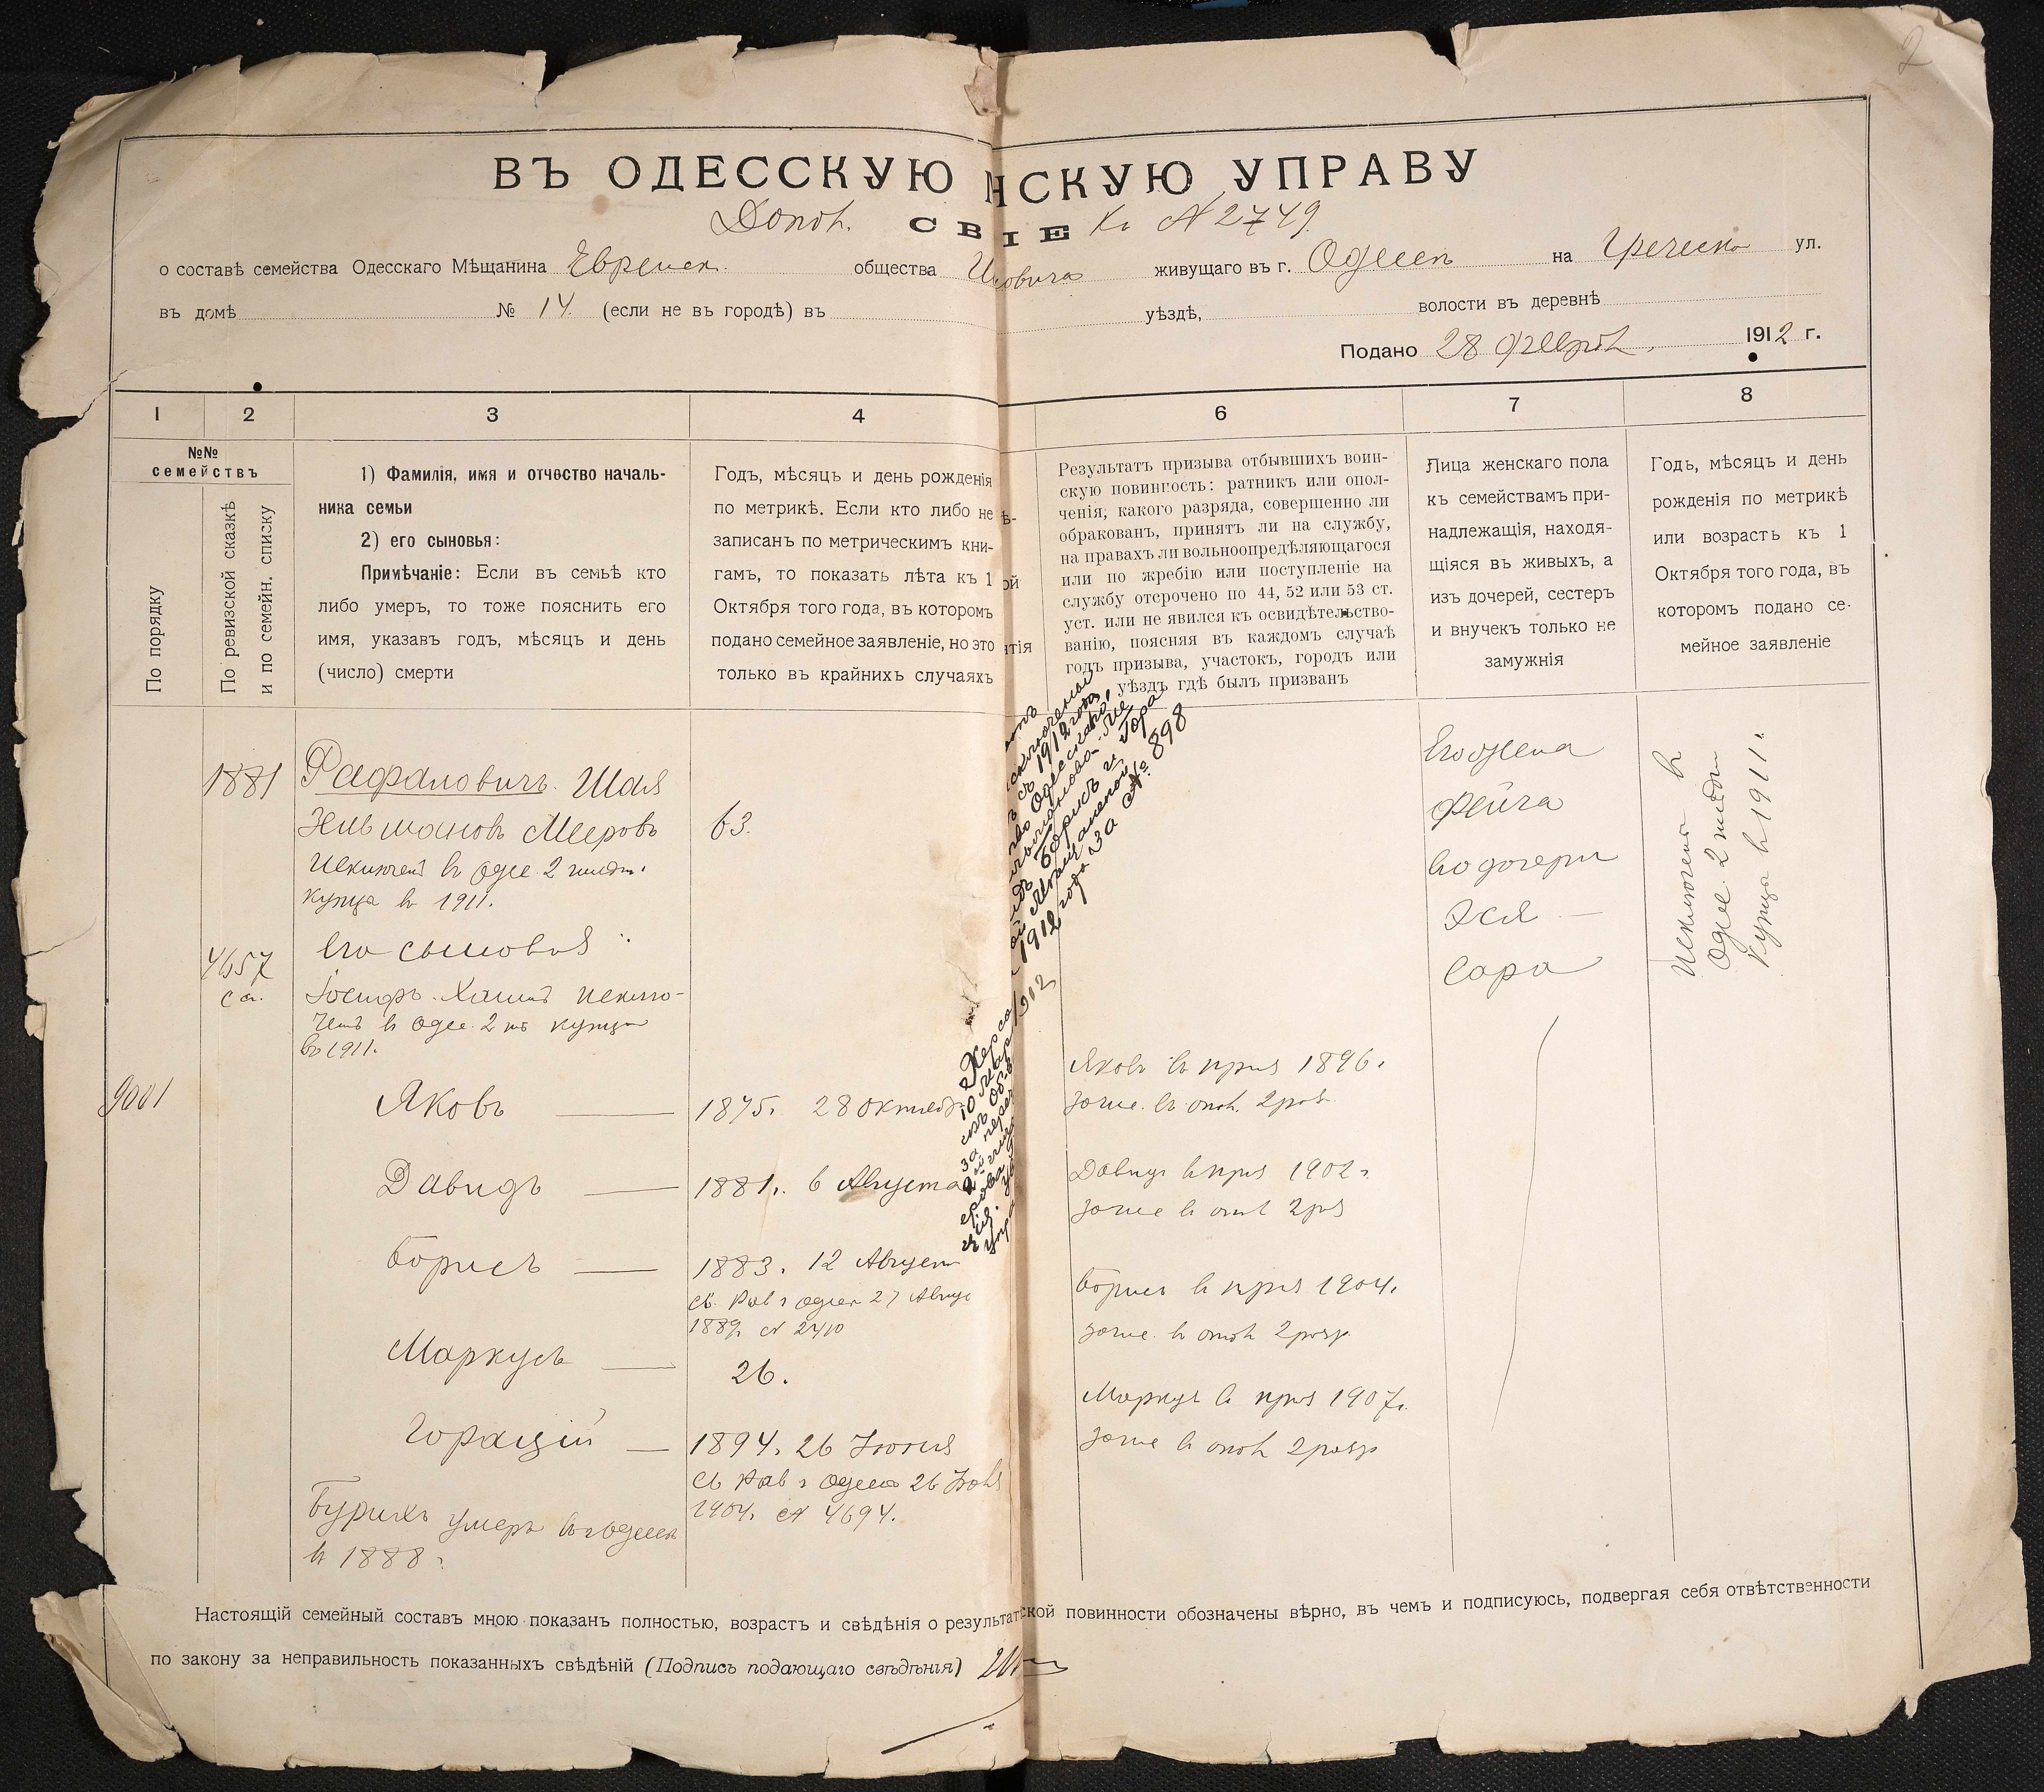 2
ВЪ ОДЕССКУЮ НСКУЮ УПРАВУ
Допол. СВ ІЕ Къ № 2749.
о составѣ семейства Одесскаго Мѣщанина Еврейск. общества живущаго въ г. Одессѣ на Греческ ул.
въ домѣ № 14. (если не въ городѣ) въ уѣздѣ, волости въ деревнѣ
Подано 28 1912 г.
1 2 3 4 6 7 8
№№
семействъ
По порядку
По ревизской сказкѣ
и по семейн. списку
1) Фамилія, имя и отчество началь-
ника семьи
2) его сыновья:
Примѣчаніе: Если въ семьѣ кто
либо умеръ, то тоже пояснить его
имя, указавъ годъ, мѣсяцъ и день
(число) смерти
Годъ, мѣсяцъ и день рожденія
по метрикѣ. Если кто либо не
записанъ по метрическимъ кни-
гамъ, то показать лѣта къ 1
Октября того года, въ которомъ
подано семейное заявленіе, но это
только въ крайнихъ случаяхъ
Результатъ призыва отбывшихъ воин-
скую повинность: ратникъ или опол-
ченія; какого разряда, совершенно ли
обракованъ, принятъ ли на службу,
на правахъ ли вольноопредѣляющагося
или по жребію или поступленіе на
службу отсрочено по 44, 52 или 53 ст.
уст. или не явился къ освидѣтельство-
ванію, поясняя въ каждомъ случаѣ
годъ призыва, участокъ, городъ или
уѣздъ гдѣ былъ призванъ
Лица женскаго пола
къ семействамъ при-
надлежащія, находя-
щіяся въ живыхъ, а
изъ дочерей, сестеръ
и внучекъ только не
замужнія
Годъ, мѣсяцъ и день
рожденія по метрикѣ
или возрастъ къ 1
Октября того года, въ
которомъ подано се-
мейное заявленіе
1881
Рафаловичъ Шая
Зельмановъ Мееровъ
63.
Исключен въ Одес. 2 гильд.
купца въ 1911.
4657
ск.
Его сыновья:
Іосифъ Хаимъ исклю-
ченъ въ Одес. 2 гг купца
въ 1911.
9001
Яковъ
1875. 28 октября
Давидъ
1881. 6 Августа
Борисъ
1883. 12 Август
св. Рав г Одессы 27 Авгус
1889. № 2410
Маркусъ
26.
Горацій
1894. 26 Іюня
св Рав г Одессы 26 Іюня
1904. № 4694.
Бурихъ умеръ въ г Одессѣ
въ 1888 г.
1912 года
Борисъ и Гора
1912 года за № 898
1912
Яковъ въ приз 1896.
зачис. въ опол. 2 раз
Давидъ въ приз 1902 г.
зачис в опол 2 раз
Борисъ в приз 1904.
зачис. в опол 2 разр
Маркусъ в приз 1907 г.
зачис в опол 2 разр
Его жена
Фейга
Его дочери
Эся
Сара
Исключена въ
Одес. 2 гильдии
купца въ 1911 г.
Настоящій семейный составъ мною показанъ полностью, возрастъ и свѣдѣнія о результат ской повинности обозначены вѣрно, въ чемъ и подписуюсь, подвергая себя отвѣтственности
по закону за неправильность показанныхъ свѣдѣній (Подпись подающаго свѣдѣнія)